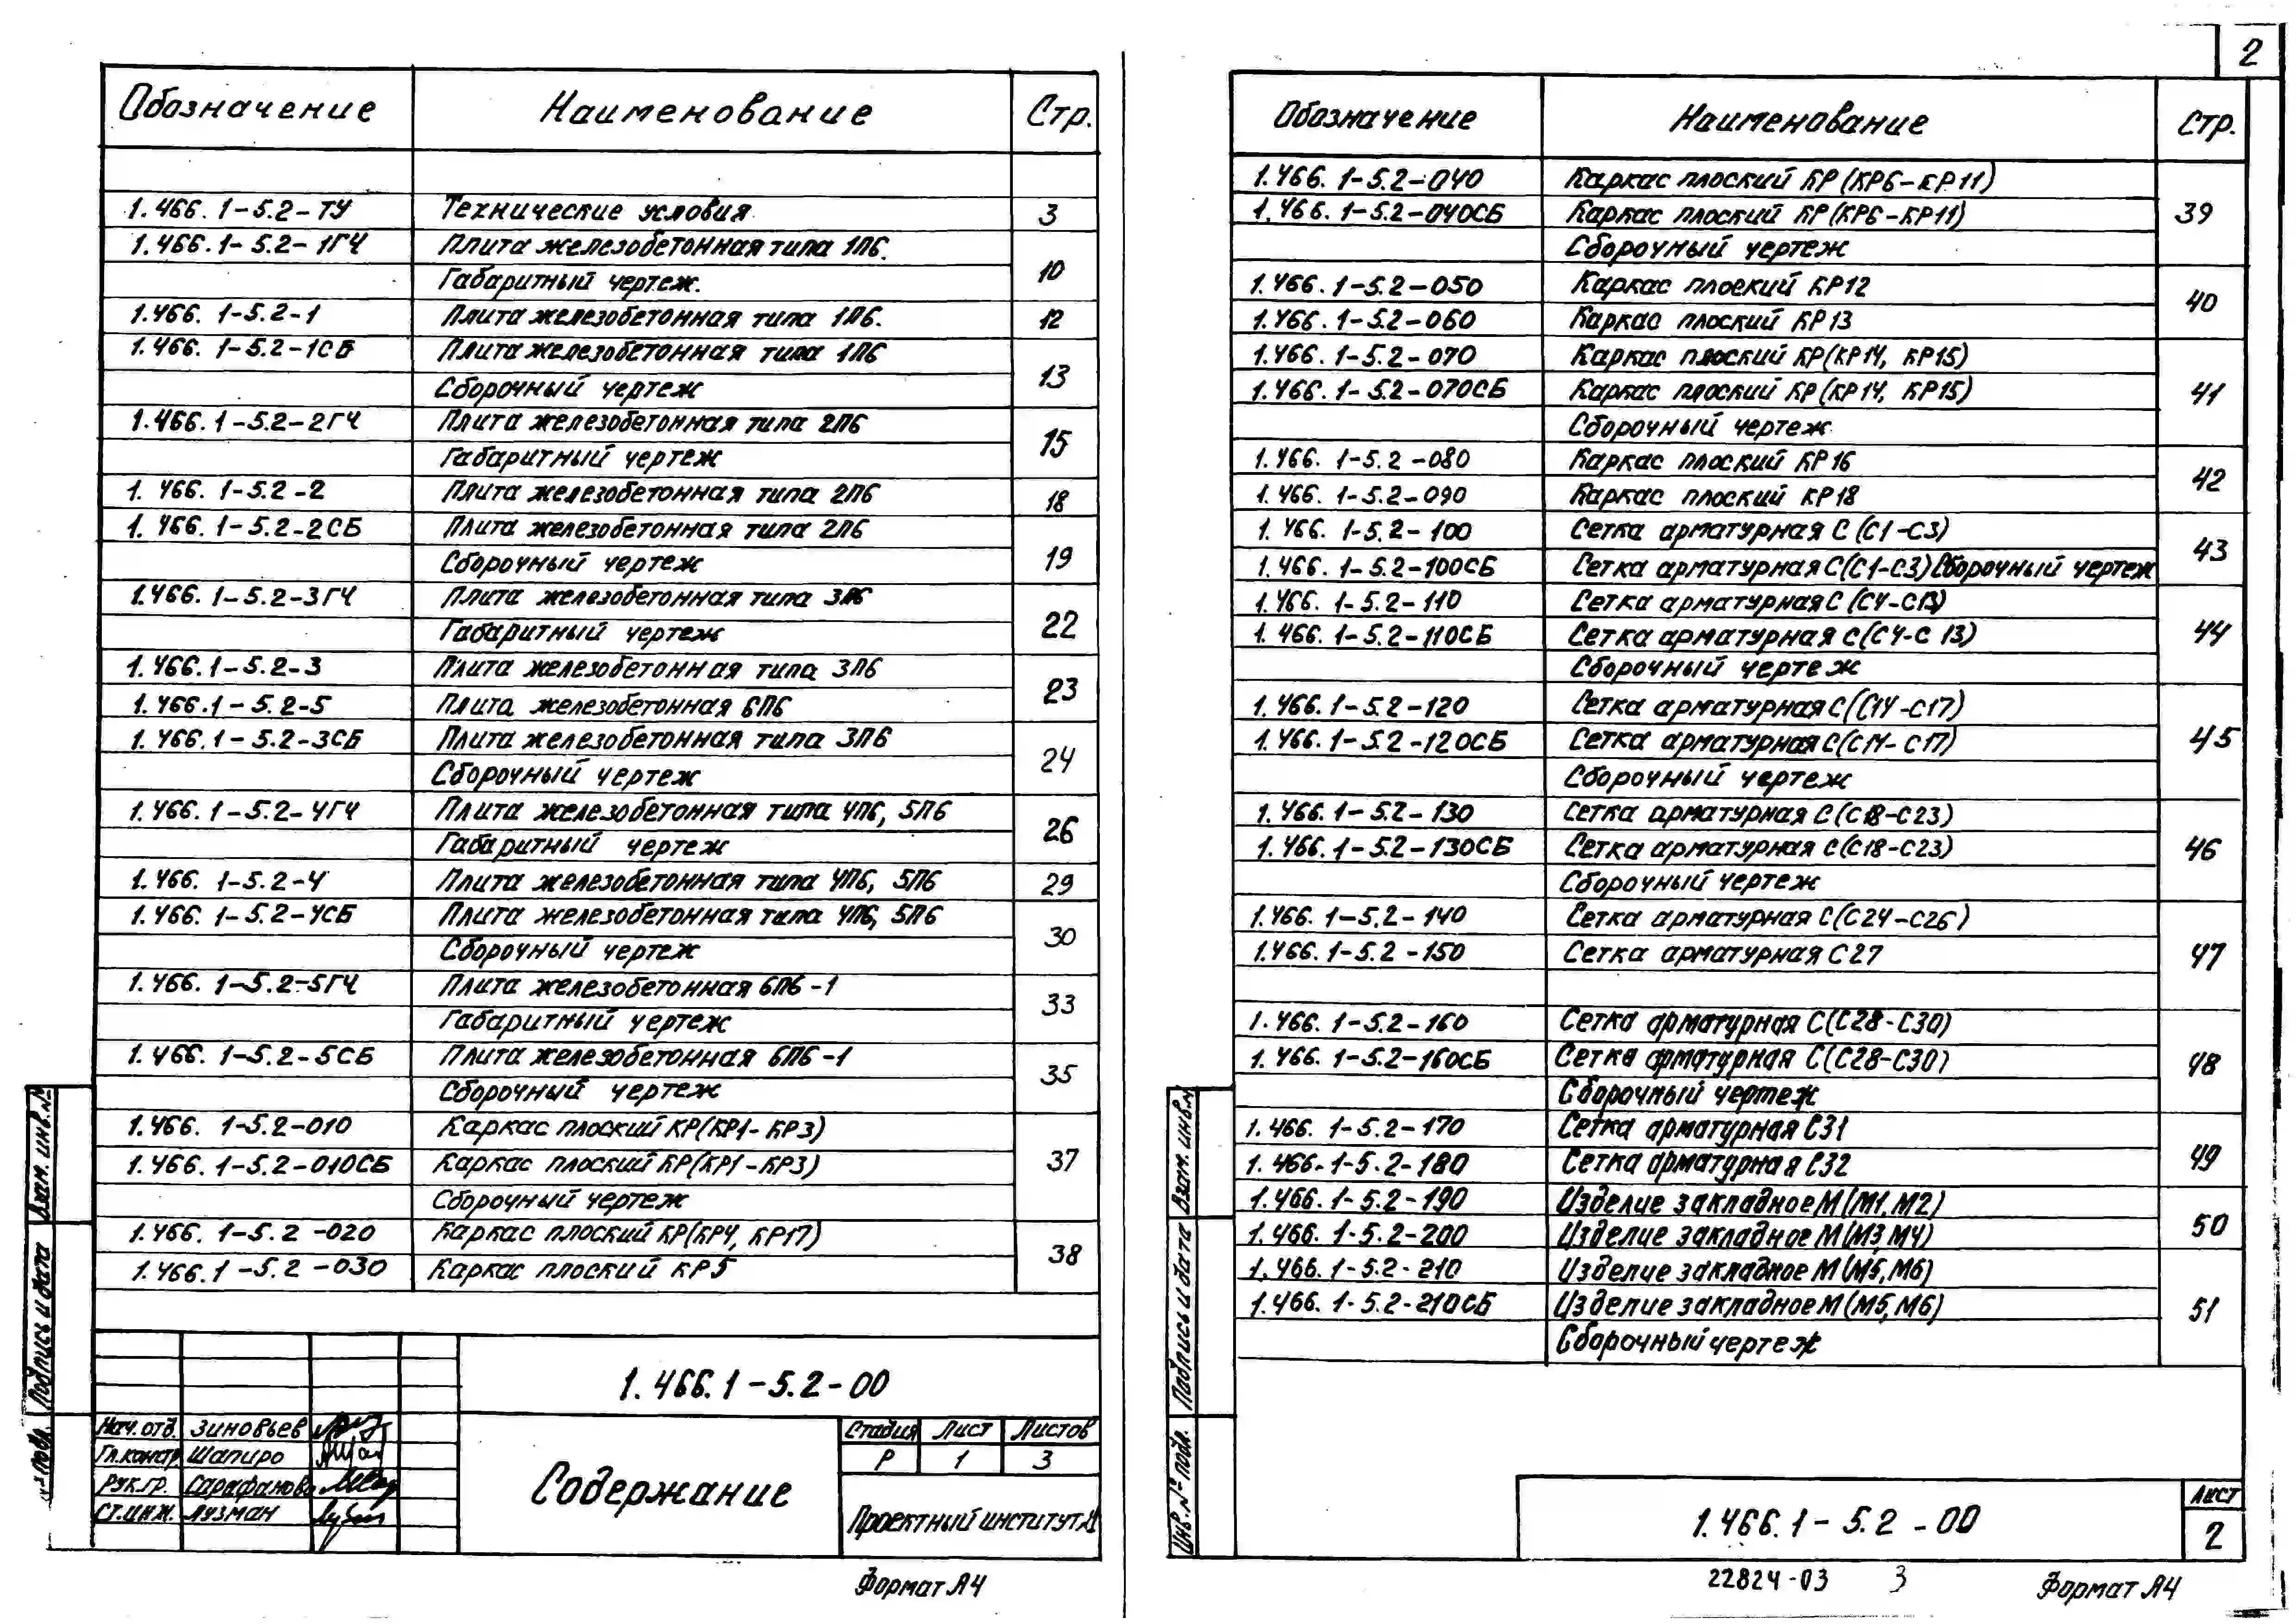 Обозначение Наименование Стр.
1.466.1-5.2-ТУ Технические условия 3
1.466.1-5.2-1ГЧ Плита железобетонная типа 1П6.
Габаритный чертеж. 10
1.466.1-5.2-1 Плита железобетонная типа 1П6. 12
1.466.1-5.2-1СБ Плита железобетонная типа 1П6
Сборочный чертеж 13
1.466.1-5.2-2ГЧ Плита железобетонная типа 2П6
Габаритный чертеж 15
1.466.1-5.2-2 Плита железобетонная типа 2П6 18
1.466.1-5.2-2СБ Плита железобетонная типа 2П6
Сборочный чертеж 19
1.466.1-5.2-3ГЧ Плита железобетонная типа 3П6
Габаритный чертеж 22
1.466.1-5.2-3 Плита железобетонная типа 3П6
23
1.466.1-5.2-5 Плита железобетонная 6П6
1.466.1-5.2-3СБ Плита железобетонная типа 3П6
Сборочный чертеж 24
1.466.1-5.2-4ГЧ Плита железобетонная типа 4П6, 5П6
Габаритный чертеж 26
1.466.1-5.2-4 Плита железобетонная типа 4П6, 5П6 29
1.466.1-5.2-4СБ Плита железобетонная типа 4П6, 5П6
Сборочный чертеж 30
1.466.1-5.2-5ГЧ Плита железобетонная 6П6-1
Габаритный чертеж 33
1.466.1-5.2-5СБ Плита железобетонная 6П6-1
Сборочный чертеж 35
1.466.1-5.2-010 Каркас плоский КР(КР1-КР3)
1.466.1-5.2-010СБ Каркас плоский КР(КР1-КР3) 37
Сборочный чертеж
1.466.1-5.2-020 Каркас плоский КР(КР4, КР17)
38
1.466.1-5.2-030 Каркас плоский КР5
1.466.1-5.2-00
Нач.отд. Зиновьев
Гл.констр Шапиро
Рук.гр. Сарафанова
Ст.инж. Лузман
Содержание
Стадия Лист Листов
Р 1 3
Проектный институт №1
Взам. инв.№
Подпись и дата
№ подл.
Формат А4
2
Обозначение Наименование Стр.
1.466.1-5.2-040 Каркас плоский КР(КР6-КР11)
1.466.1-5.2-040СБ Каркас плоский КР(КР6-КР11) 39
Сборочный чертеж
1.466.1-5.2-050 Каркас плоский КР12
40
1.466.1-5.2-060 Каркас плоский КР13
1.466.1-5.2-070 Каркас плоский КР(КР14, КР15)
1.466.1-5.2-070СБ Каркас плоский КР(КР14, КР15) 41
Сборочный чертеж
1.466.1-5.2-080 Каркас плоский КР16
42
1.466.1-5.2-090 Каркас плоский КР18
1.466.1-5.2-100 Сетка арматурная С(С1-С3)
43
1.466.1-5.2-100СБ Сетка арматурная С(С1-С3)Сборочный чертеж
1.466.1-5.2-110 Сетка арматурная С(С4-С13)
1.466.1-5.2-110СБ Сетка арматурная С(С4-С13) 44
Сборочный чертеж
1.466.1-5.2-120 Сетка арматурная С(С14-С17)
1.466.1-5.2-120СБ Сетка арматурная С(С14-С17) 45
Сборочный чертеж
1.466.1-5.2-130 Сетка арматурная С(С18-С23)
1.466.1-5.2-130СБ Сетка арматурная С(С18-С23) 46
Сборочный чертеж
1.466.1-5.2-140 Сетка арматурная С(С24-С26)
1.466.1-5.2-150 Сетка арматурная С27 47
1.466.1-5.2-160 Сетка арматурная С(С28-С30)
1.466.1-5.2-160СБ Сетка арматурная С(С28-С30) 48
Сборочный чертеж
1.466.1-5.2-170 Сетка арматурная С31
49
1.466.1-5.2-180 Сетка арматурная С32
1.466.1-5.2-190 Изделие закладное М(М1,М2)
50
1.466.1-5.2-200 Изделие закладное М(М3,М4)
1.466.1-5.2-210 Изделие закладное М(М5,М6)
1.466.1-5.2-210СБ Изделие закладное М(М5,М6) 51
Сборочный чертеж
Взам. инв.№
Подпись и дата
Инв.№ подл.
1.466.1-5.2-00
Лист
2
22824-03 3
Формат А4